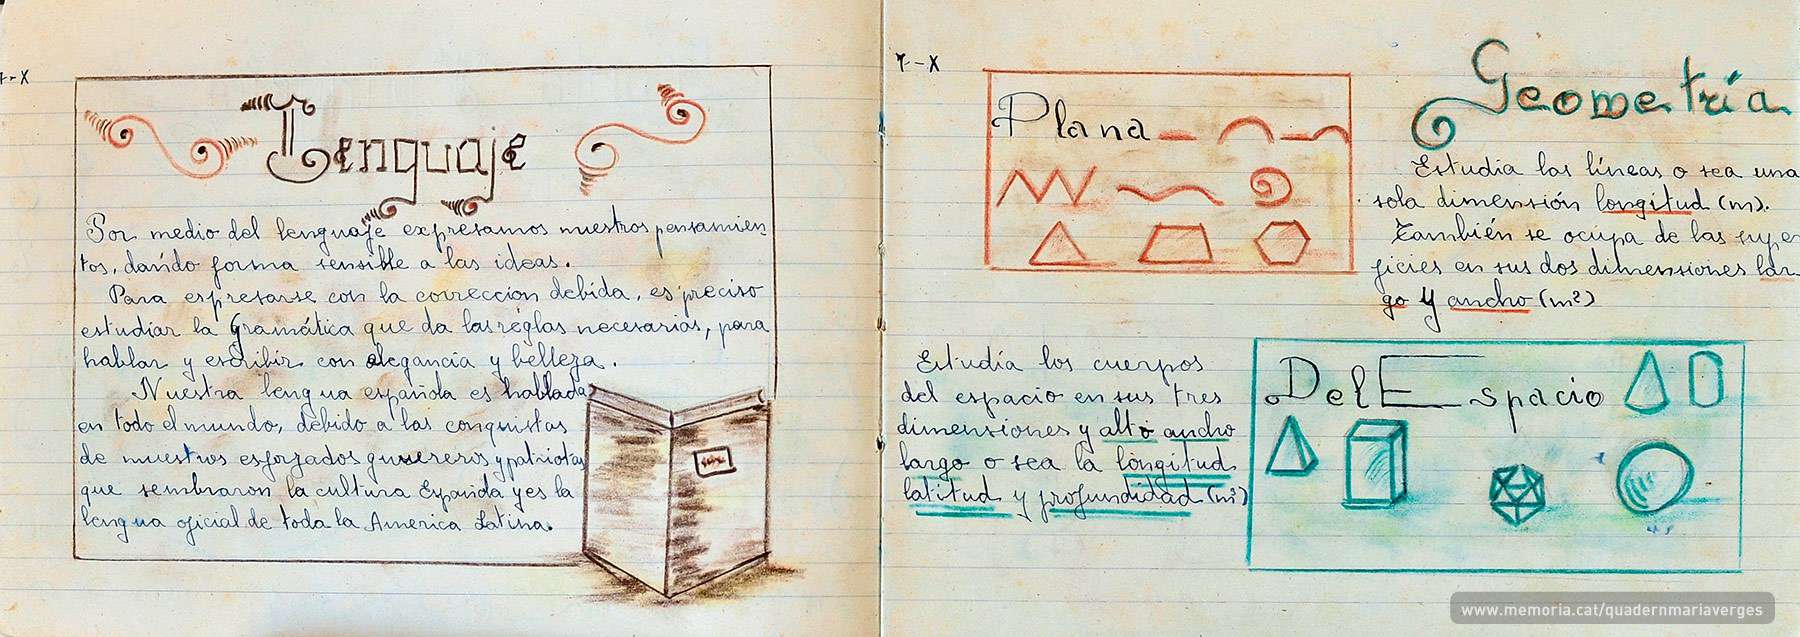 7-X
Lenguaje
Por medio del lenguaje expresamos nuestros pensamien
tos, dando forma sensible a las ideas.
Para espresarse con la correccion debida, es preciso
estudiar la Gramática que da las reglas necesarias, para
hablar y escribir con elegancia y belleza.
Nuestra lengua española es hablada
en todo el mundo, debido a las conquistas
de nuestros esforzados guerreros y patriotas
que sembraron la cultura Española y es la
lengua oficial de toda la America Latina.
7-X
Geometría
Plana
Estudia las líneas o sea una
sola dimensión longitud (m).
También se ocupa de las supe
ficies en sus dos dimensiones lar
go y ancho (m²)
Estudia los cuerpos
del espacio en sus tres
dimensiones y alto ancho
largo o sea la longitud
latitud y profundidad (m³)
Del Espacio
www.memoria.cat/quadernmariaverges